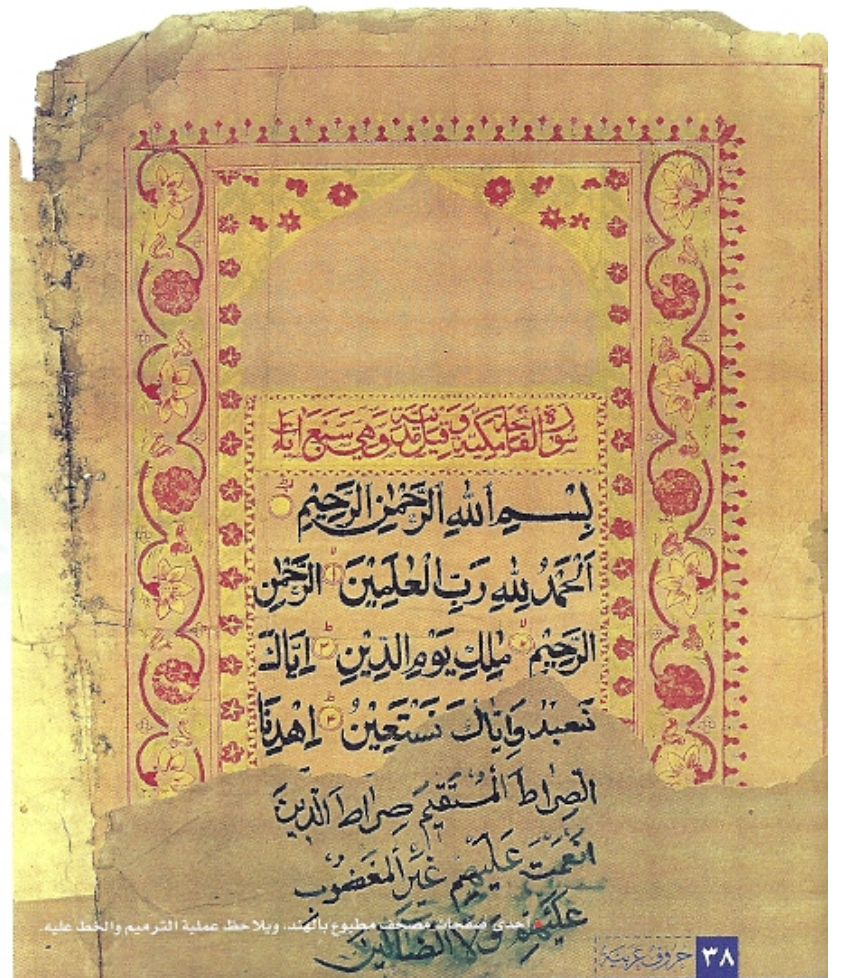 سورة الفاتحة مكية وقيل مدنية وهي سبع ايات
بِسْمِ اللهِ الرَّحْمٰنِ الرَّحِيْمِ
اَلْحَمْدُ لِلّٰهِ رَبِّ الْعٰلَمِيْنَ ۱ الرَّحْمٰنِ
الرَّحِيْمِ ۲ مٰلِكِ يَوْمِ الدِّيْنِ ۳ اِيَّاكَ
نَعْبُدُ وَاِيَّاكَ نَسْتَعِيْنُ ۴ اِهْدِنَا
الصِّرَاطَ الْمُسْتَقِيْمَ صِرَاطَ الَّذِيْنَ
اَنْعَمْتَ عَلَيْهِمْ غَيْرِ الْمَغْضُوْبِ
عَلَيْهِمْ وَلَا الضَّالِّيْنَ
إحدى صفحات مصحف مطبوع بالهند، ويلاحظ عملية الترميم والخط عليه.
٣٨ حروف عربية